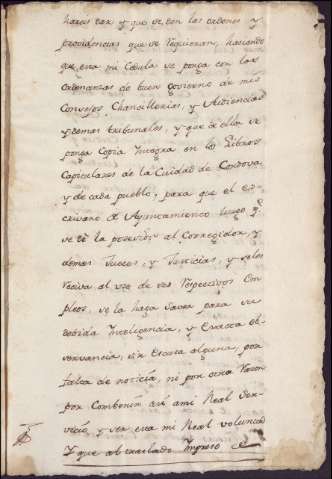 hacer dar y que se den las ordenes y
providencias que se requieran, haciendo
que esta mi Cedula se ponga con las
ordenanzas de buen govierno de mis
Consejos Chancillerias, y Audiencias
y demas tribunales, y que de ella se
ponga Copia Integra en los Libros
Capitulares de la Ciudad de Cordova
y de cada pueblo, para que el Es-
crivano de Ayuntamiento luego qe.
se dé la posesion al Corregidor y
demas Jueces, y Justicias, y se les
reciva al uso de sus respectivos Em-
pleos, se la haga saver para su
devida Inteligencia, y Exacta ob-
servancia, sin Escusa alguna, por
falta de noticia, ni por otra razon
por Combenir asi a mi Real Ser-
vicio, y ser esta mi Real voluntad
Y que al traslado Impreso